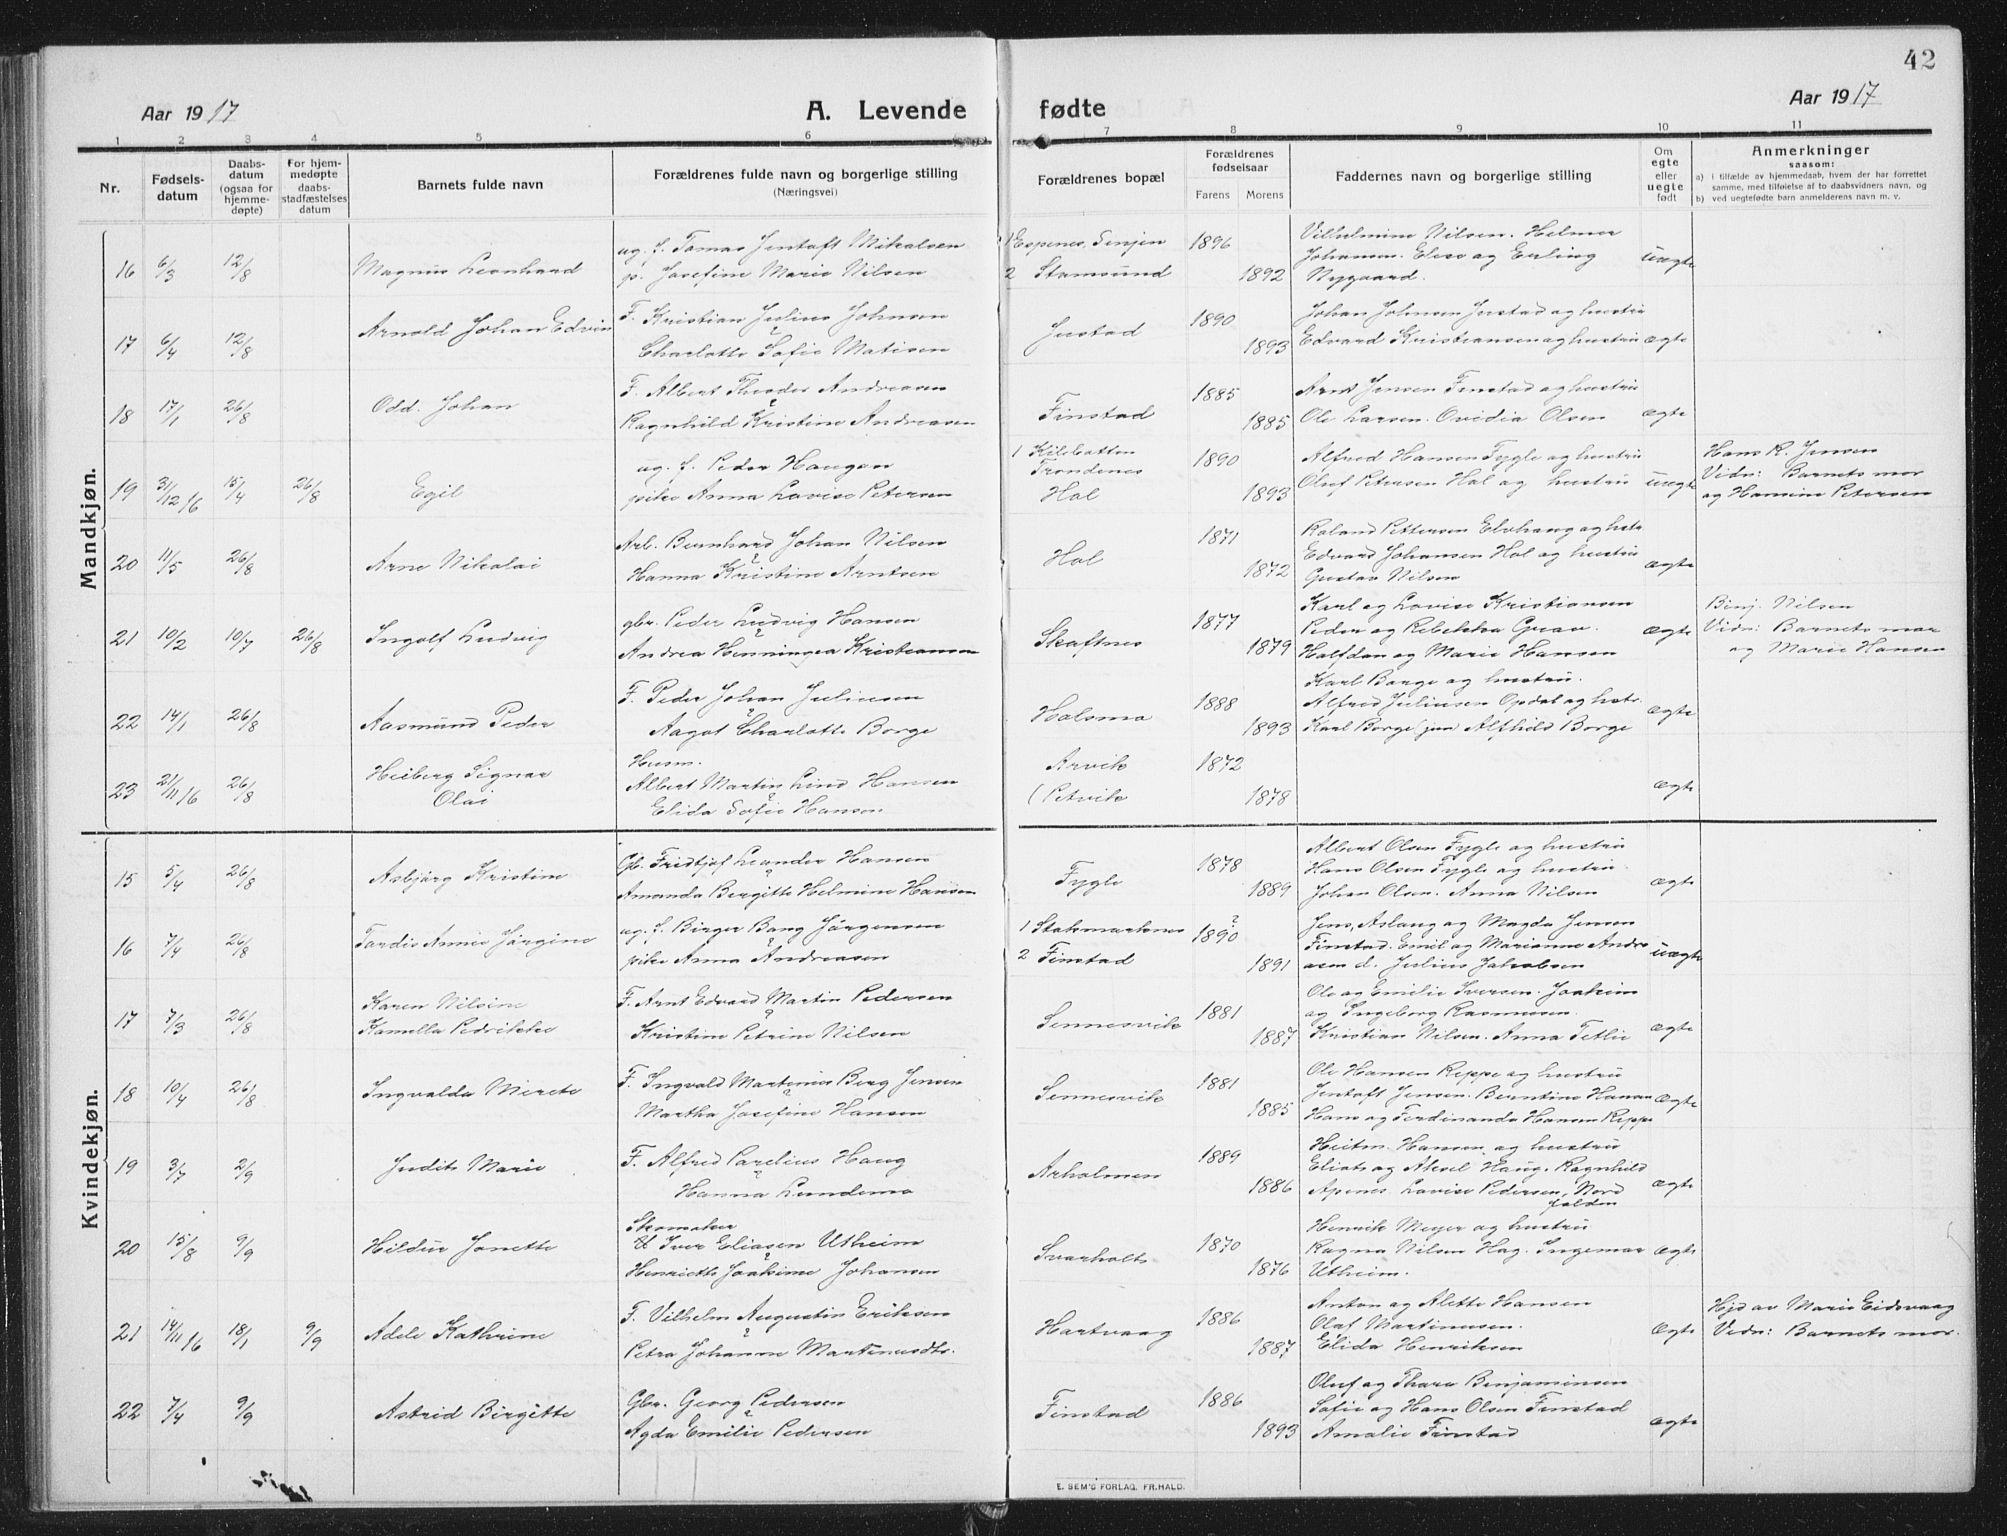 42
Aar 1917
A. Levende fødte
Aar 1917
1 2 3 4 5 6 7 8 9 10 11
Nr.
Fødselsdatum
Daabsdatum (ogsaa for hjemmedøpte)
For hjemmedøpte daabsstadfæstelses datum
Barnets fulde navn
Forældrenes fulde navn og borgerlige stilling
(Næringsvei)
Forældrenes bopæl
Forældrenes fødselsaar
Farens Morens
Faddernes navn og borgerlige stilling
Om egte eller uegte født
Anmerkninger
saasom:
a) i tilfælde av hjemmedaab, hvem der har forrettet
samme, med tilføielse af to daabsvidners navn, og
b) ved uegtefødte barn anmelderens navn m. v.
Mandkjøn.
16 6/3 12/8 Magnus Leonhard
ug. f. Tomas Jentoft Mikalsen
p. Josefine Marie Nilsen
1 Espenes, Senjen 1896
2 Stamsund 1892
Vilhelmine Nilsen. Helmer
Johansen. Elise og Erling
Nygaard.
uegte
17 6/4 12/8 Arnold Johan Edvin
F. Kristian Julius Johnsen
Charlotte Sofie Matisen
Justad 1890 1893
Johan Johnsen Justad og hustru
Edvard Kristiansen og hustru
ægte
18 17/1 26/8 Odd. Johan
F. Albert Theodor Andreasen
Ragnhild Kristine Andreasen
Finstad 1885 1885
Arnt Jensen Finstad og hustru
Ole Larsen. Ovidia Olsen
ægte
19 31/12 16 15/4 26/8 Egil
ug. f. Peder Haugan
pike Anna Lovise Petersen
1 Kilebotten
Trondenes
Hol
1890 1893
Alfred Hansen Fygle og hustru
Oluf Petersen Hol og hustru
uegte
Hans R. Jensen
Vidn: Barnets mor
og Hansine Petersen
20 11/5 26/8 Arne Nikolai
Arb. Bernhard Johan Nilsen
Hanna Kristine Arntsen
Hol 1871 1872
Roland Pettersen Elvhaug og hstr
Edvard Johansen Hol og hustru
Gustav Nilsen
ægte
21 10/2 10/7 26/8 Ingolf Ludvig
gbr. Peder Ludvig Hansen
Andrea Henningea Kristiansen
Skaftnes 1877 1879
Karl og Lovise Kristiansen
Peder og Rebekka Grav.
Halfdan og Marie Hansen
ægte
Binj. Nilsen
Vidn: Barnets mor
og Marie Hansen
22 14/1 26/8 Aasmund Peder
F. Peder Johan Juliusen
Aagot Charlotte Borge
Holsmo 1888 1893
Karl Borge og hustru.
Alfred Juliusen Opdøl og hstr.
Karl Borge jun Alfhild Borge
ægte
23 21/11 16 26/8 Heiberg Signar
Olai
Husm.
Albert Martin Lind Hansen
Elida Sofie Hansen
Arvik
(Petvik
1872 1878
ægte
Kvindekjøn.
15 5/4 26/8 Asbjørg Kristine
Gb. Fridtjof Leander Hansen
Amanda Bergitte Helmine Hansen
Fygle 1878 1889
Albert Olsen Fygle og hustru
Hans Olsen Fygle og hustru.
Johan Olsen. Anna Nilsen
ægte
16 7/4 26/8 Tordis Annie Jørgine
ug. f. Birger Bang Jørgensen
pike Anna Andreasen
1 Stokmarknes
2 Finstad
? 1890 1891
Jens, Aslaug og Magda Jensen
Finstad. Emil og Marianne Andre
asen d. Julius Jakobsen
uegte
17 7/3 26/8 Karen Nilsine
Kamella Pedrikke
F. Arnt Edvard Martin Pedersen
Kristine Petrine Nilsen
Sennesvik 1881 1887
Ole og Emilie Iversen. Joakim
og Ingeborg Rasmusen.
Kristian Nilsen. Anna Tetlie
ægte
18 10/4 26/8 Ingvalda Merete
F. Ingvald Martinus Berg Jensen
Martha Josefine Hansen
Sennesvik 1881 1885
Ole Hansen Reppe og hustru
Jentoft Jensen. Berntine Hansen
Hans og Ferdinanda Hansen Reppe
ægte
19 3/7 2/9 Judith Marie
F. Alfred Parelius Haug
Hanna Lundemo
Arholmen 1889 1886
Heitm. Hansen og hustru
Eliats og Aksel Haug. Ragnhild
Apenes. Lovise Pedersen, Nord
folden
ægte
20 15/8 9/9 Hildur Jonette
Skomaker
Iver Eliasen Utheim
Henriette Joakime Johansen
Svarholt 1870 1876
Henrik Meyer og hustru
Ragna Nilsen Hag. Ingemar
Utheim.
ægte
21 14/11 16 18/1 9/9 Adele Kathrine
F. Vilhelm Augustin Eriksen
Petra Johanne Martinusdtr.
Hartvaag 1886 1887
Anton og Alette Hansen
Olaf Martinusen.
Elida Henriksen
ægte
Hjd av Marie Eidsvaag
Vidn: Barnets mor.
22 7/4 9/9 Astrid Birgitte
Gbr. Georg Pedersen
Agda Emilie Pedersen
Finstad 1886 1893
Oluf og Thora Benjaminsen
Sofie og Hans Olsen Finstad
Amalie Finstad
ægte
E. SEM'S FORLAG, FR.HALD.